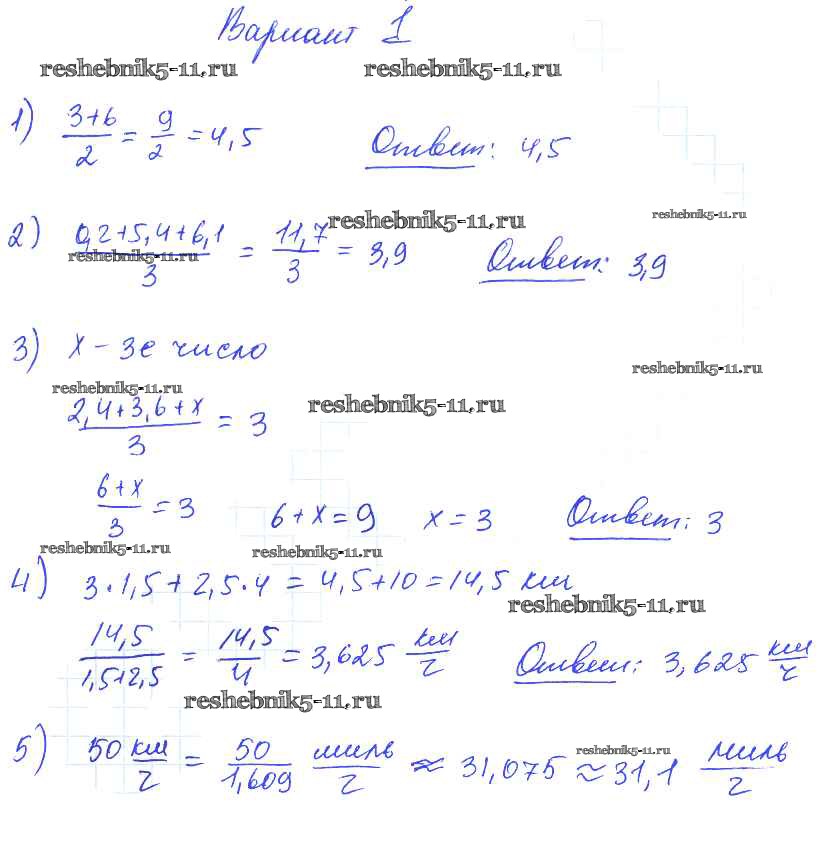 Вариант 1
reshebnik5-11.ru reshebnik5-11.ru
1) (3+6)/2 = 9/2 = 4,5 Ответ: 4,5
reshebnik5-11.ru reshebnik5-11.ru
2) (0,2+5,4+6,1)/3 = 11,7/3 = 3,9 Ответ: 3,9
reshebnik5-11.ru
3) x – 3е число
reshebnik5-11.ru
reshebnik5-11.ru reshebnik5-11.ru
(2,4+3,6+x)/3 = 3
(6+x)/3 = 3 6+x=9 x=3 Ответ: 3
reshebnik5-11.ru reshebnik5-11.ru
4) 3·1,5+2,5·4 = 4,5+10=14,5 км
reshebnik5-11.ru
14,5/(1,5+2,5) = 14,5/4 = 3,625 км/ч Ответ: 3,625 км/ч
reshebnik5-11.ru
5) 50 км/ч = 50/1,609 миль/ч ≈ 31,075 ≈ 31,1 миль/ч
reshebnik5-11.ru